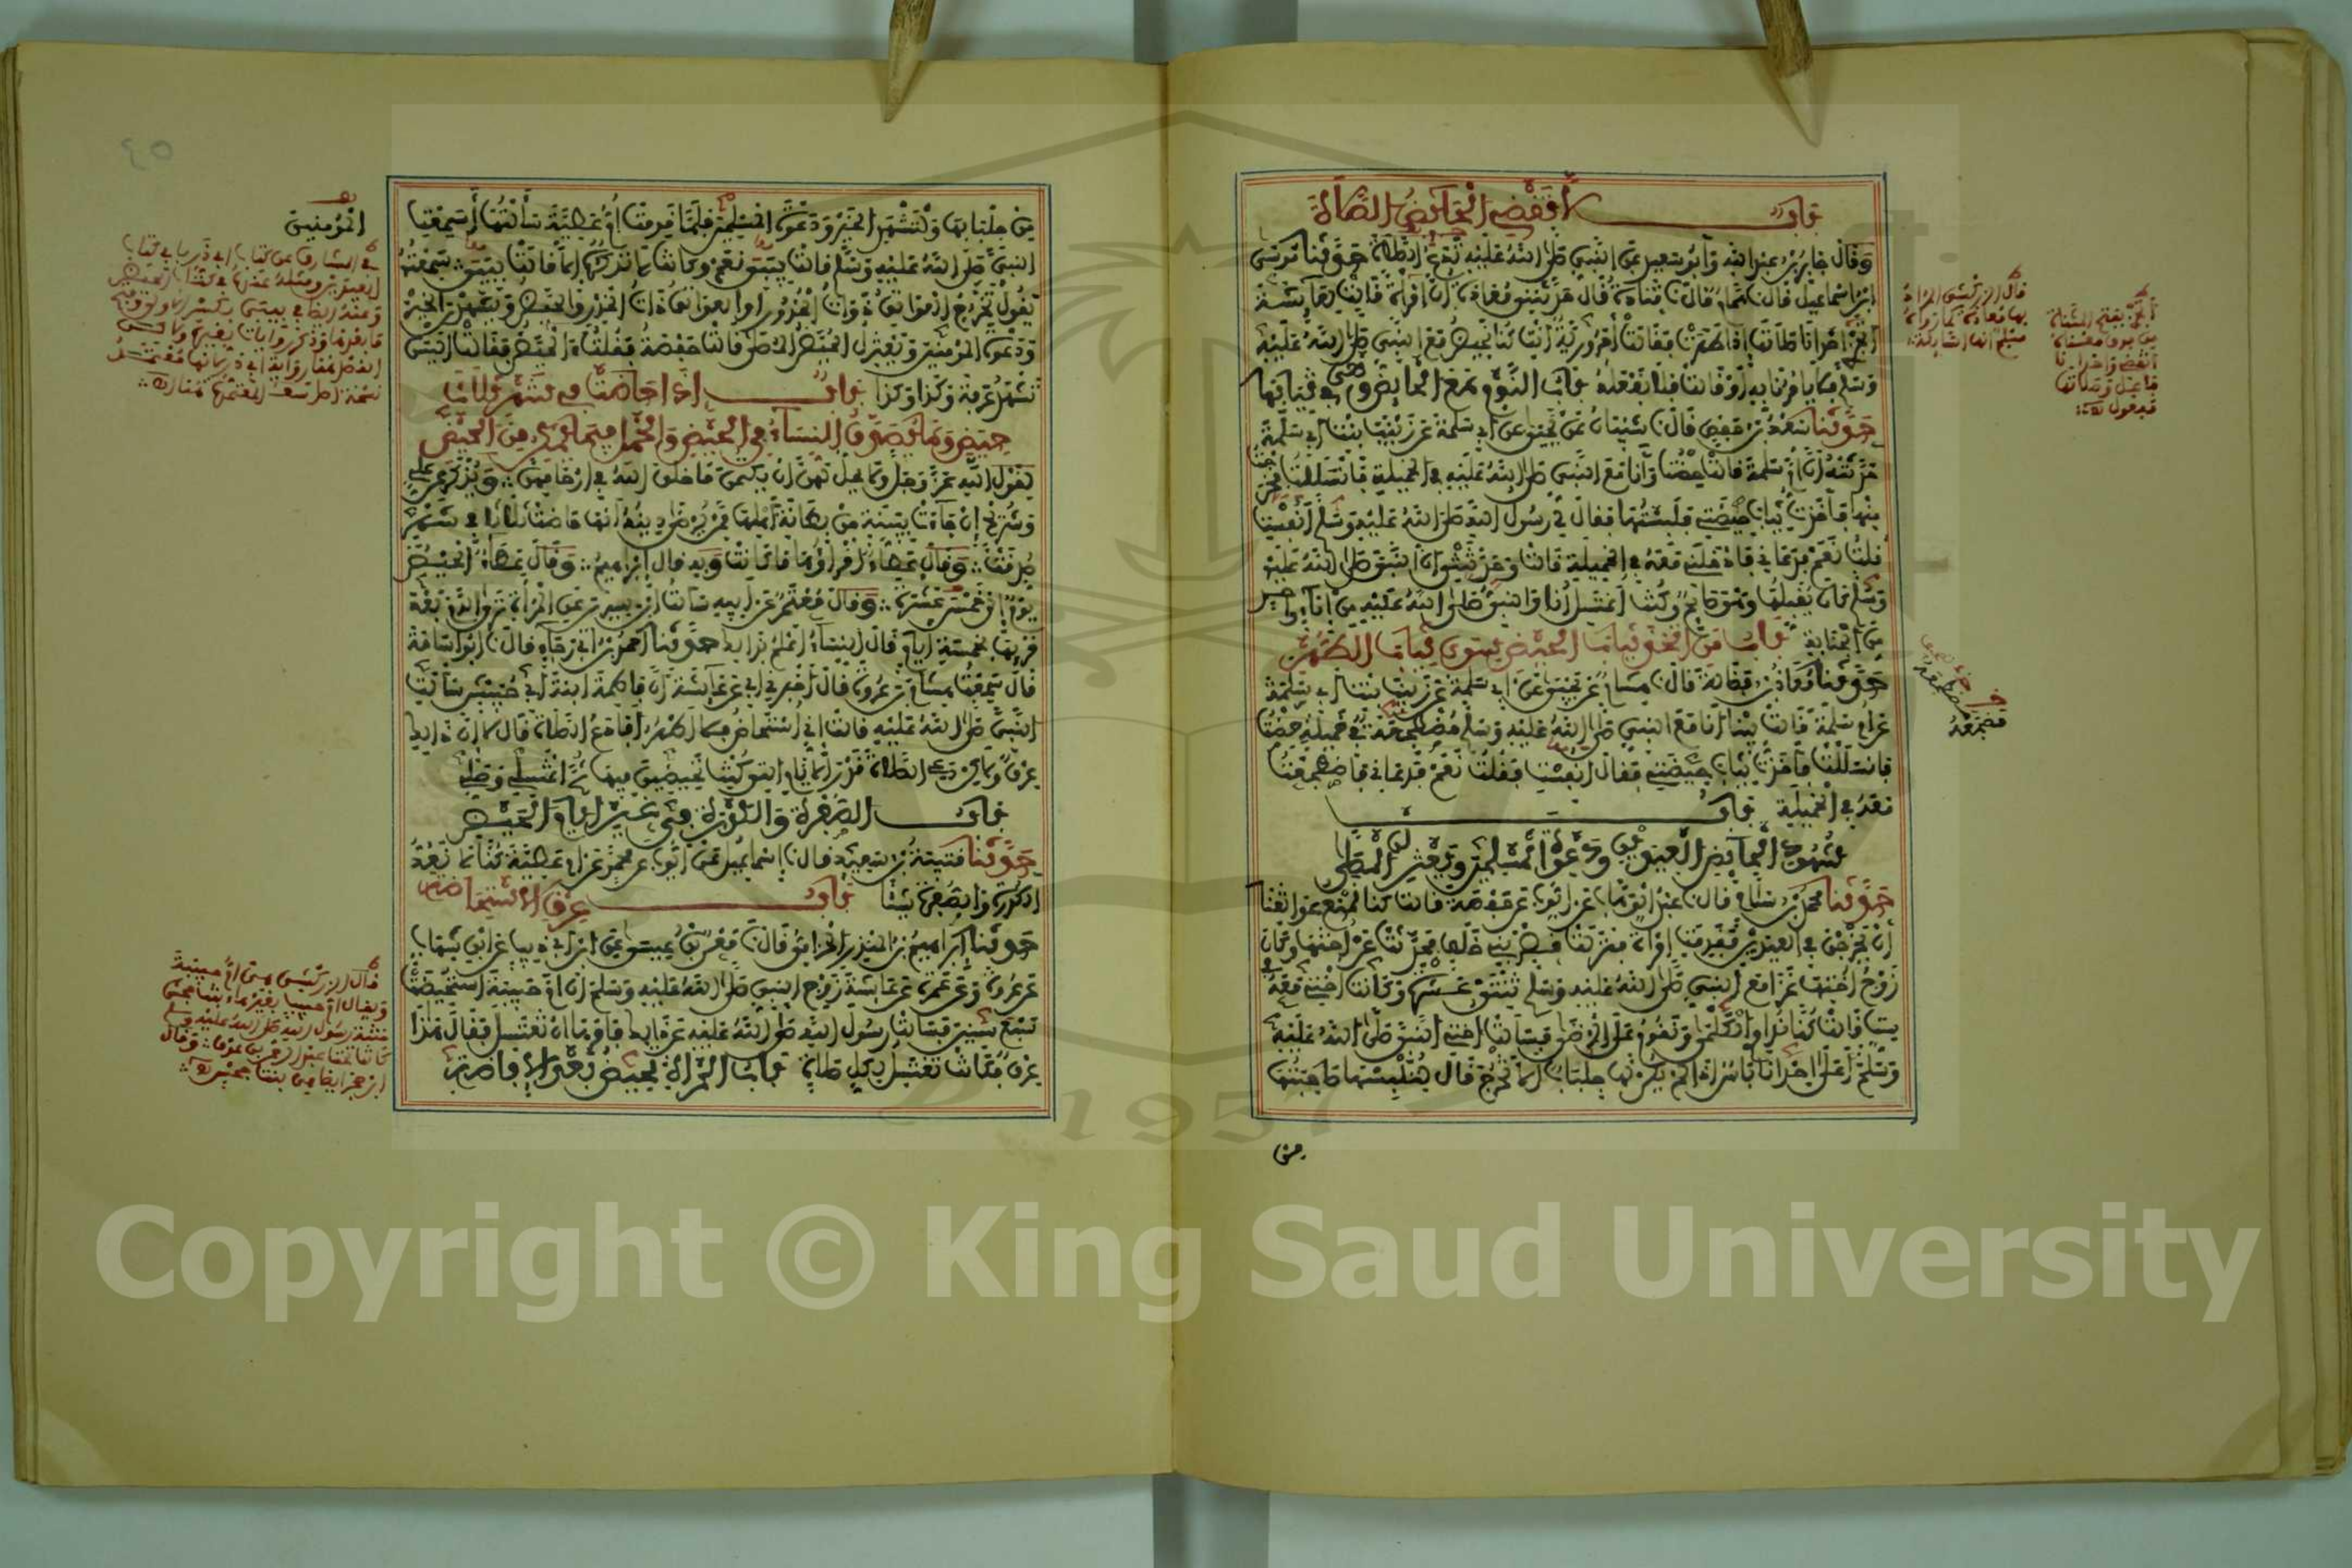 باب لا تقضي الحائض الصلاة
وقال جابر بن عبد الله وأبو سعيد عن النبي صلى الله عليه تدع الصلاة حدثنا موسى
ابن إسماعيل قال نا همام قال نا قتادة قال حدثتني معاذة أن امرأة قالت لعائشة
أتجزي إحدانا صلاتها إذا طهرت فقالت أحرورية أنت كنا نحيض مع النبي صلى الله عليه
وسلم فلا يأمرنا به أو قالت فلا نفعله باب النوم مع الحائض وهي في ثيابها
حدثنا سعد بن حفص قال نا شيبان عن يحيى عن أبي سلمة عن زينب بنت أبي سلمة
حدثته أن أم سلمة قالت حضت وأنا مع النبي صلى الله عليه في الخميلة فانسللت فخرجت
منها فأخذت ثياب حيضتي فلبستها فقال لي رسول الله صلى الله عليه وسلم أنفست
قلت نعم فدعاني فأدخلني معه في الخميلة قالت وحدثتني أن النبي صلى الله عليه
وسلم كان يقبلها وهو صائم وكنت أغتسل أنا والنبي صلى الله عليه من إناء واحد
من الجنابة باب من اتخذ ثياب الحيض سوى ثياب الطهر
حدثنا معاذ بن فضالة قال نا هشام عن يحيى عن أبي سلمة عن زينب بنت أبي سلمة
عن أم سلمة قالت بينا أنا مع النبي صلى الله عليه وسلم مضطجعة في خميلة حضت
فانسللت فأخذت ثياب حيضتي فقال أنفست فقلت نعم فدعاني فاضطجعت
معه في الخميلة باب
شهود الحائض العيدين ودعوة المسلمين ويعتزلن المصلى
حدثنا محمد بن سلام قال نا عبد الوهاب عن أيوب عن حفصة قالت كنا نمنع عواتقنا
أن يخرجن في العيدين فقدمت امرأة فنزلت قصر بني خلف فحدثت عن أختها وكان
زوج أختها غزا مع النبي صلى الله عليه وسلم ثنتي عشرة وكانت أختي معه في
ست قالت كنا نداوي الكلمى ونقوم على المرضى فسألت أختي النبي صلى الله عليه
وسلم أعلى إحدانا بأس إذا لم يكن لها جلباب ألا تخرج قال لتلبسها صاحبتها
من
قال الزركشي المرأة
مضجعة
من جلبابها ولتشهد الخير ودعوة المسلمين فلما قدمت أم عطية سألتها أسمعت
النبي صلى الله عليه وسلم قالت بيبي نعم وكانت لا تذكره إلا قالت بيبي سمعته
يقول تخرج العواتق وذوات الخدور أو العواتق ذوات الخدور والحيض ويشهدن الخير
ودعوة المؤمنين ويعتزل الحيض المصلى قالت حفصة فقلت الحيض فقالت أليس
تشهد عرفة وكذا وكذا باب إذا حاضت في شهر ثلاث
حيض وما يصدق النساء في الحيض والحمل فيما يمكن من الحيض
لقول الله عز وجل ولا يحل لهن أن يكتمن ما خلق الله في أرحامهن ويذكر عن علي
وشريح إن جاءت ببينة من بطانة أهلها ممن يرضى دينه أنها حاضت ثلاثا في شهر
صدقت وقال عطاء أقراؤها ما كانت وبه قال إبراهيم وقال عطاء الحيض
يوم إلى خمس عشرة وقال معتمر عن أبيه سألت ابن سيرين عن المرأة ترى الدم بعد
قرئها بخمسة أيام قال النساء أعلم بذلك حدثنا أحمد بن أبي رجاء قال نا أبو أسامة
قال سمعت هشام بن عروة قال أخبرني أبي عن عائشة أن فاطمة ابنة أبي حبيش سألت
النبي صلى الله عليه قالت إني أستحاض فلا أطهر أفأدع الصلاة قال لا إن ذلك
عرق ولكن دعي الصلاة قدر الأيام التي كنت تحيضين فيها ثم اغتسلي وصلي
باب الصفرة والكدرة في غير أيام الحيض
حدثنا قتيبة بن سعيد قال نا إسماعيل عن أيوب عن محمد عن أم عطية كنا لا نعد
الكدرة والصفرة شيئا باب عرق الاستحاضة
حدثنا إبراهيم بن المنذر الحزامي قال نا معن بن عيسى عن ابن أبي ذئب عن ابن شهاب
عن عروة وعن عمرة عن عائشة زوج النبي صلى الله عليه وسلم أن أم حبيبة استحيضت
سبع سنين فسألت رسول الله صلى الله عليه عن ذلك فأمرها أن تغتسل فقال هذا
عرق فكانت تغتسل لكل صلاة باب المرأة تحيض بعد الإفاضة
المؤمنين
قال الزركشي هي أم حبيبة
٤٥
Copyright © King Saud University
1957